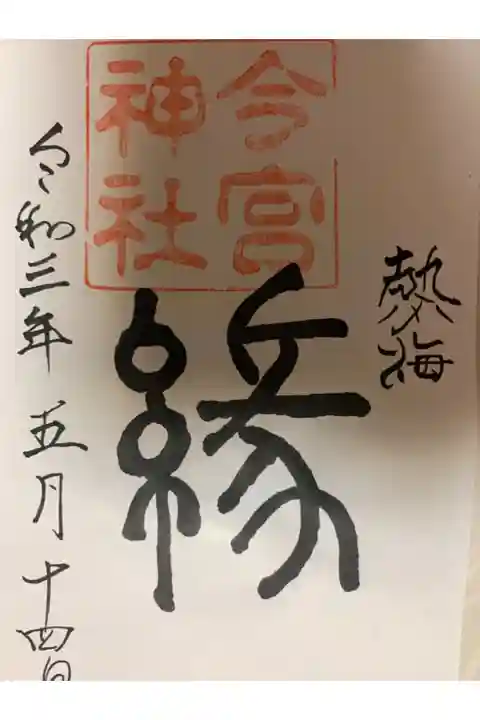 熱海
今宮
神社
縁
令和三年五月十四日